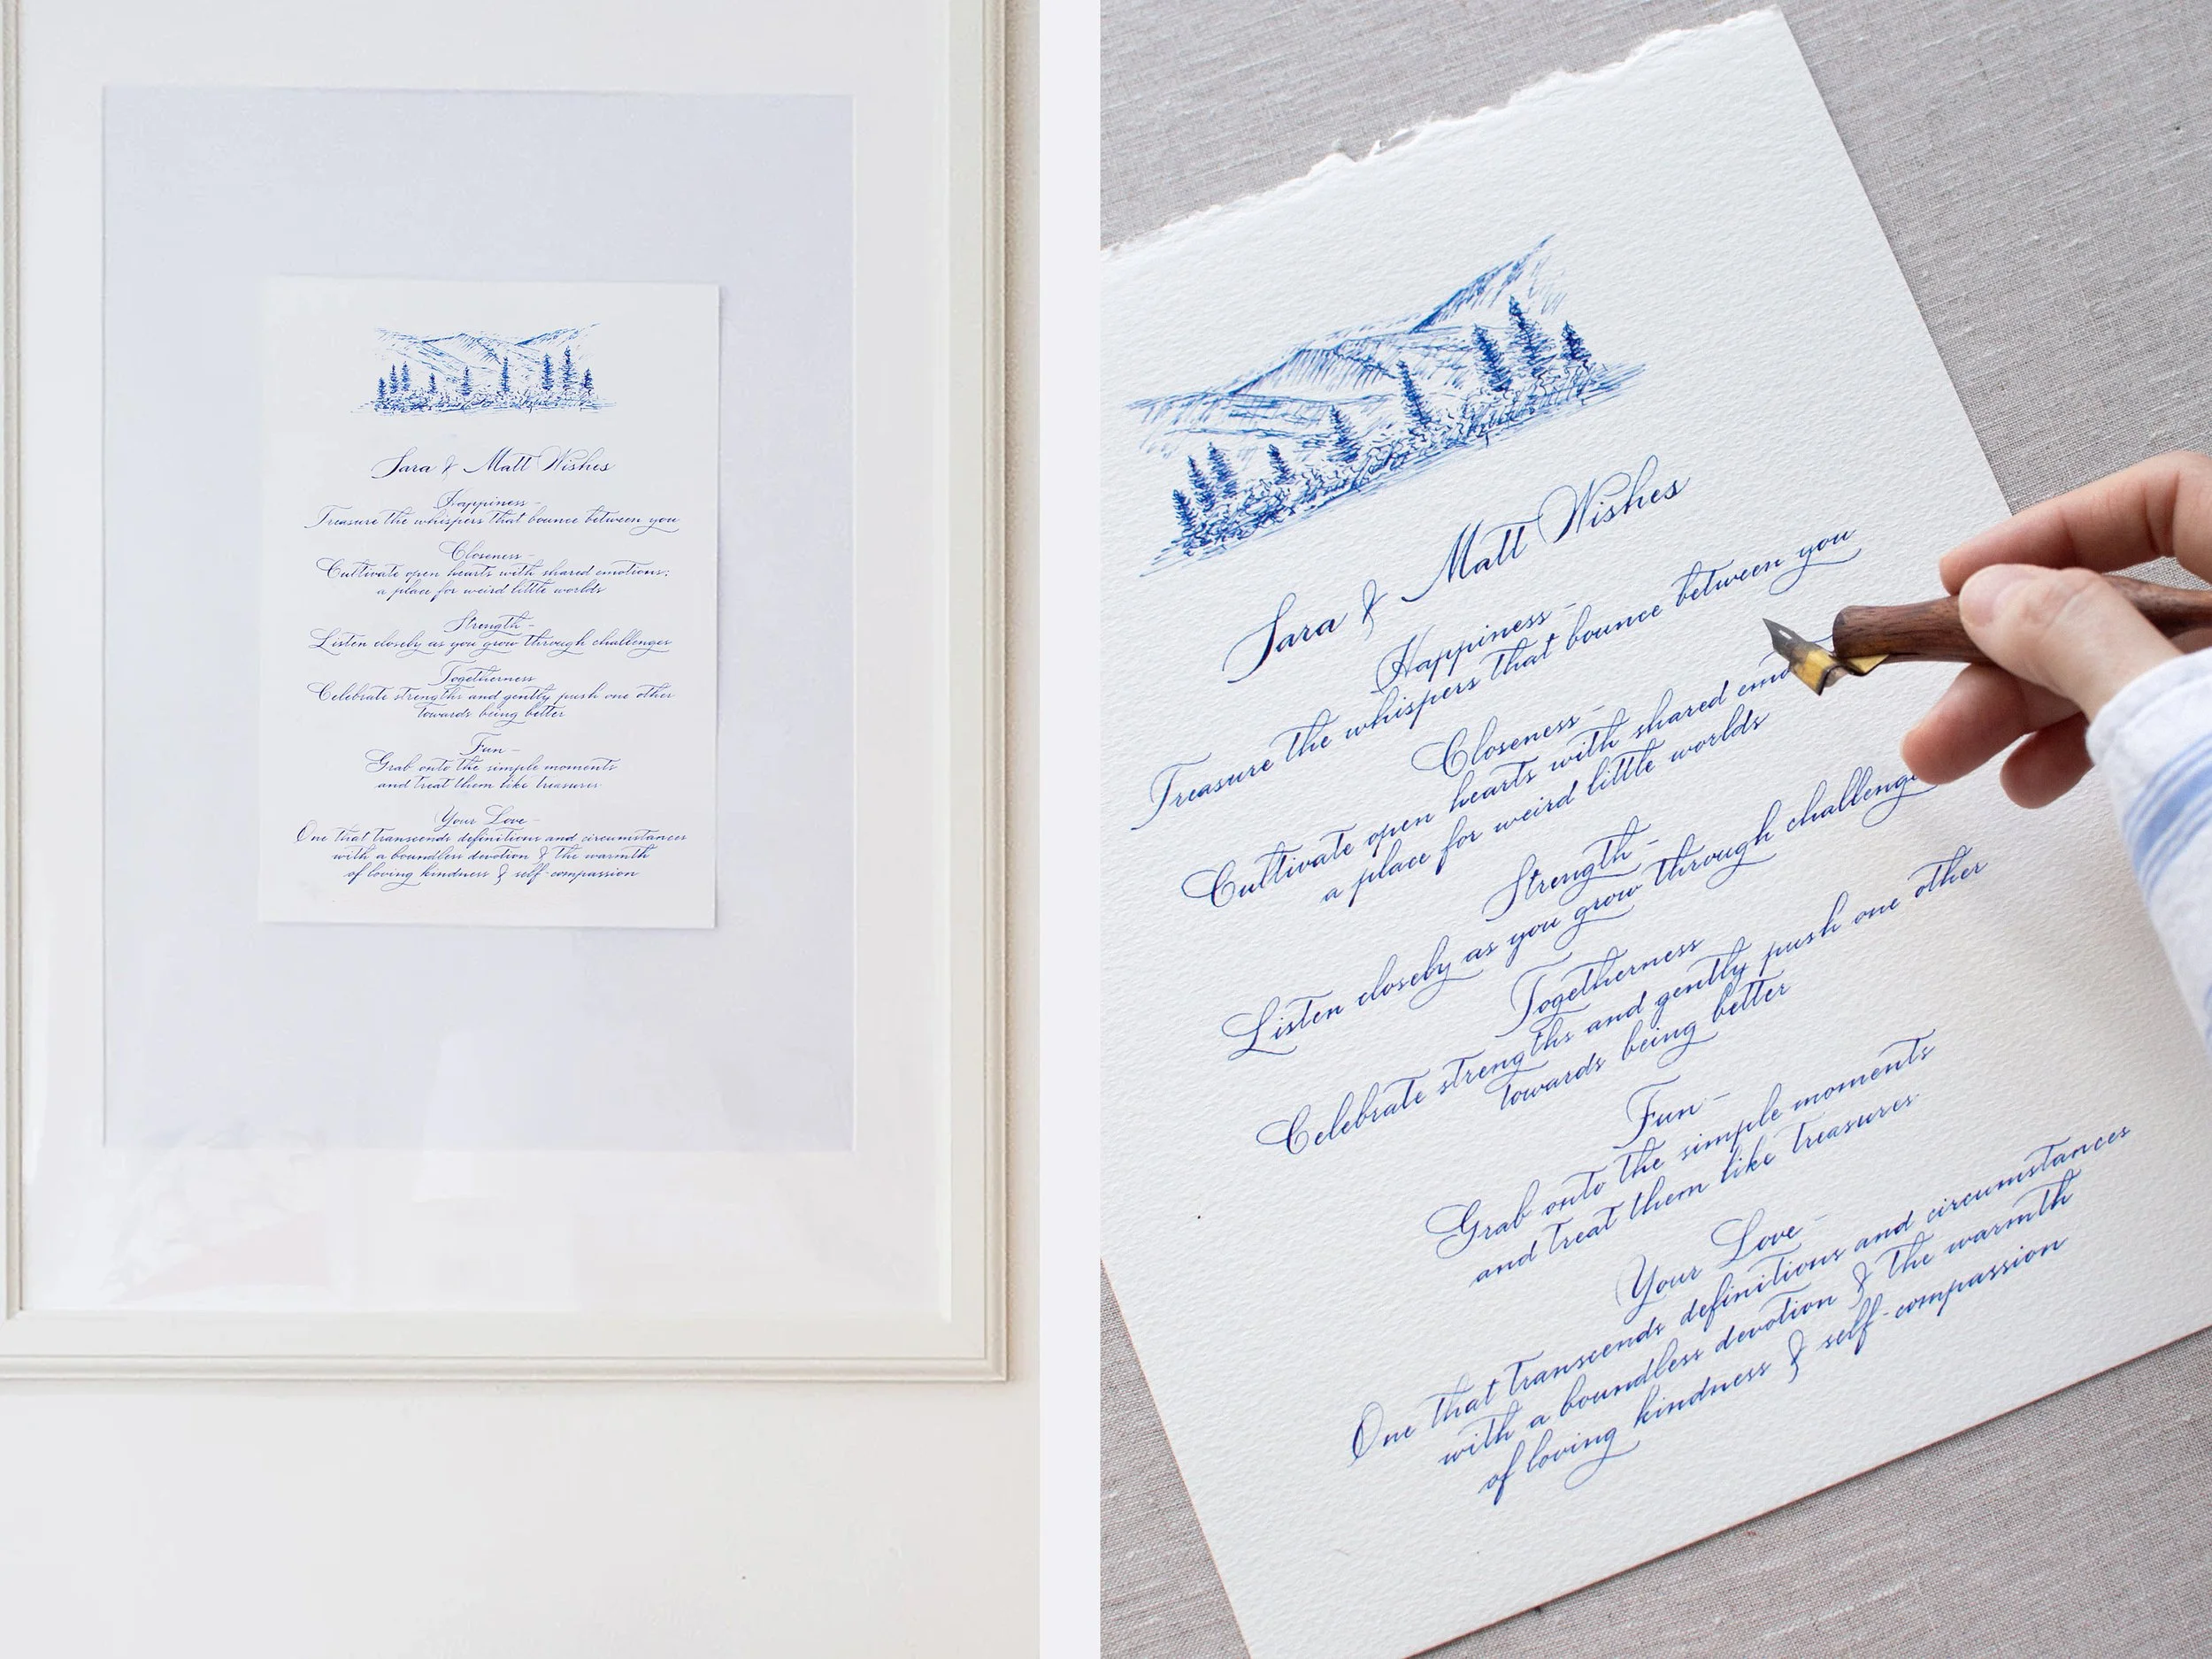 Sara & Matt Wishes
Happiness -
Treasure the whispers that bounce between you
Closeness -
Cultivate open hearts with shared emotions;
a place for weird little worlds
Strength -
Listen closely as you grow through challenges
Togetherness
Celebrate strengths and gently push one other
towards being better
Fun -
Grab onto the simple moments
and treat them like treasures
Your Love -
One that transcends definitions and circumstances
with a boundless devotion & the warmth
of loving kindness & self-compassion
Sara & Matt Wishes
Happiness -
Treasure the whispers that bounce between you
Closeness -
Cultivate open hearts with shared emo
a place for weird little worlds
Strength -
Listen closely as you grow through challenge
Togetherness
Celebrate strengths and gently push one other
towards being better
Fun -
Grab onto the simple moments
and treat them like treasures
Your Love -
One that transcends definitions and circumstances
with a boundless devotion & the warmth
of loving kindness & self-compassion